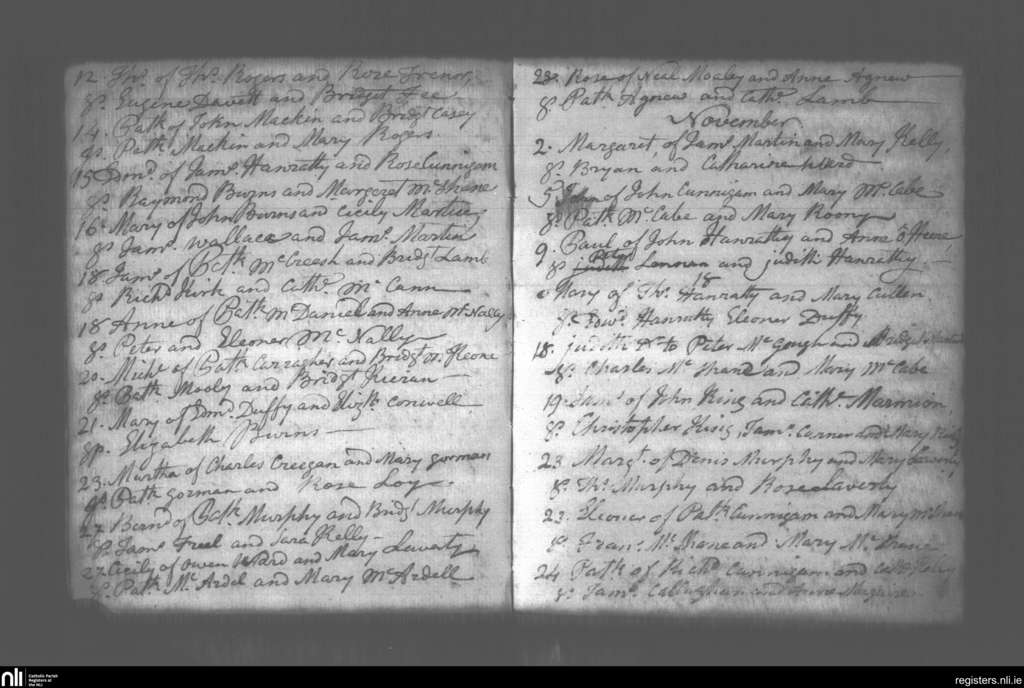 12. Thos. of Thos. Rogers and Rose Trenor
Sp. Eugene Davett and Bridget Fee
14. Patk of John Mackin and Bridgt Casey
Sp. Patk Mackin and Mary Rogers
15 Edmd. of Jams. Hanratty and Rose Cunnigam
Sp. Raymond Burns and Margaret McShane
16. Mary of John Burns and Cicily Martin
Sp Jams. Wallace and Jams. Martin
18 Jams. of Patk. McCreesh and Bridgt Lamb
Sp Richd Kirk and Cathe. McCann
18 Anne of Patk. McDaniel and Anne McNally
Sp. Peter and Eleoner McNally
20. Michl of Patk Carragher and Bridgt
Sp. Patk Mooly and Bridgt Kieran
21. Mary of Edmd. Duffy and Conwell
Sp. Elizabeth Burns
23. Martha of Charles Creegan and Mary Gorman
Sp. Patk Gorman and Rose Loy
27 Bernd of Patk. Murphy and Bridgt Murphy
Sp. Jams Freel and Sara Kelly
27 Cicily of Owen Ward and Mary Laverty
Sp. Patk. McArdel and Mary McArdell
28. Rose of Neal and Anne Agnew
Sp. Patk Agnew and Cathe. Lamb
November
2. Margaret, of Jams. Martin and Mary Kelly
Sp. Bryan and Catharine Ward
5 John of John Cunnigam and Mary McCabe
Sp. Patk. McCabe and Mary Roony
9. Paul of John Hanratty and Anne
Peter
Sp Judith Lennan and Judith Hanratty
18
Mary of Thos. Hanratty and Mary Cullen
Sp. Edwd. Hanratty Eleoner Duffy
18. Judith to Peter McGeogh and
Sp. Charles McShane and Mary McCabe
19. of John King and Cathe. Marmion
Sp. Christopher King, Jams. Carner and Mary
23 Margt. of Denis Murphy and Mary Laverty
Sp. Thos. Murphy and Rose Laverty
23. Eleoner of Patk. Cunnigam and Mary McShane
Sp. McShane and Mary McShane
24 Patk of Richd Cunnigam and
Sp. Jams. Callaghan and Anne
nli
Catholic Parish
Registers at
the NLI
registers.nli.ie